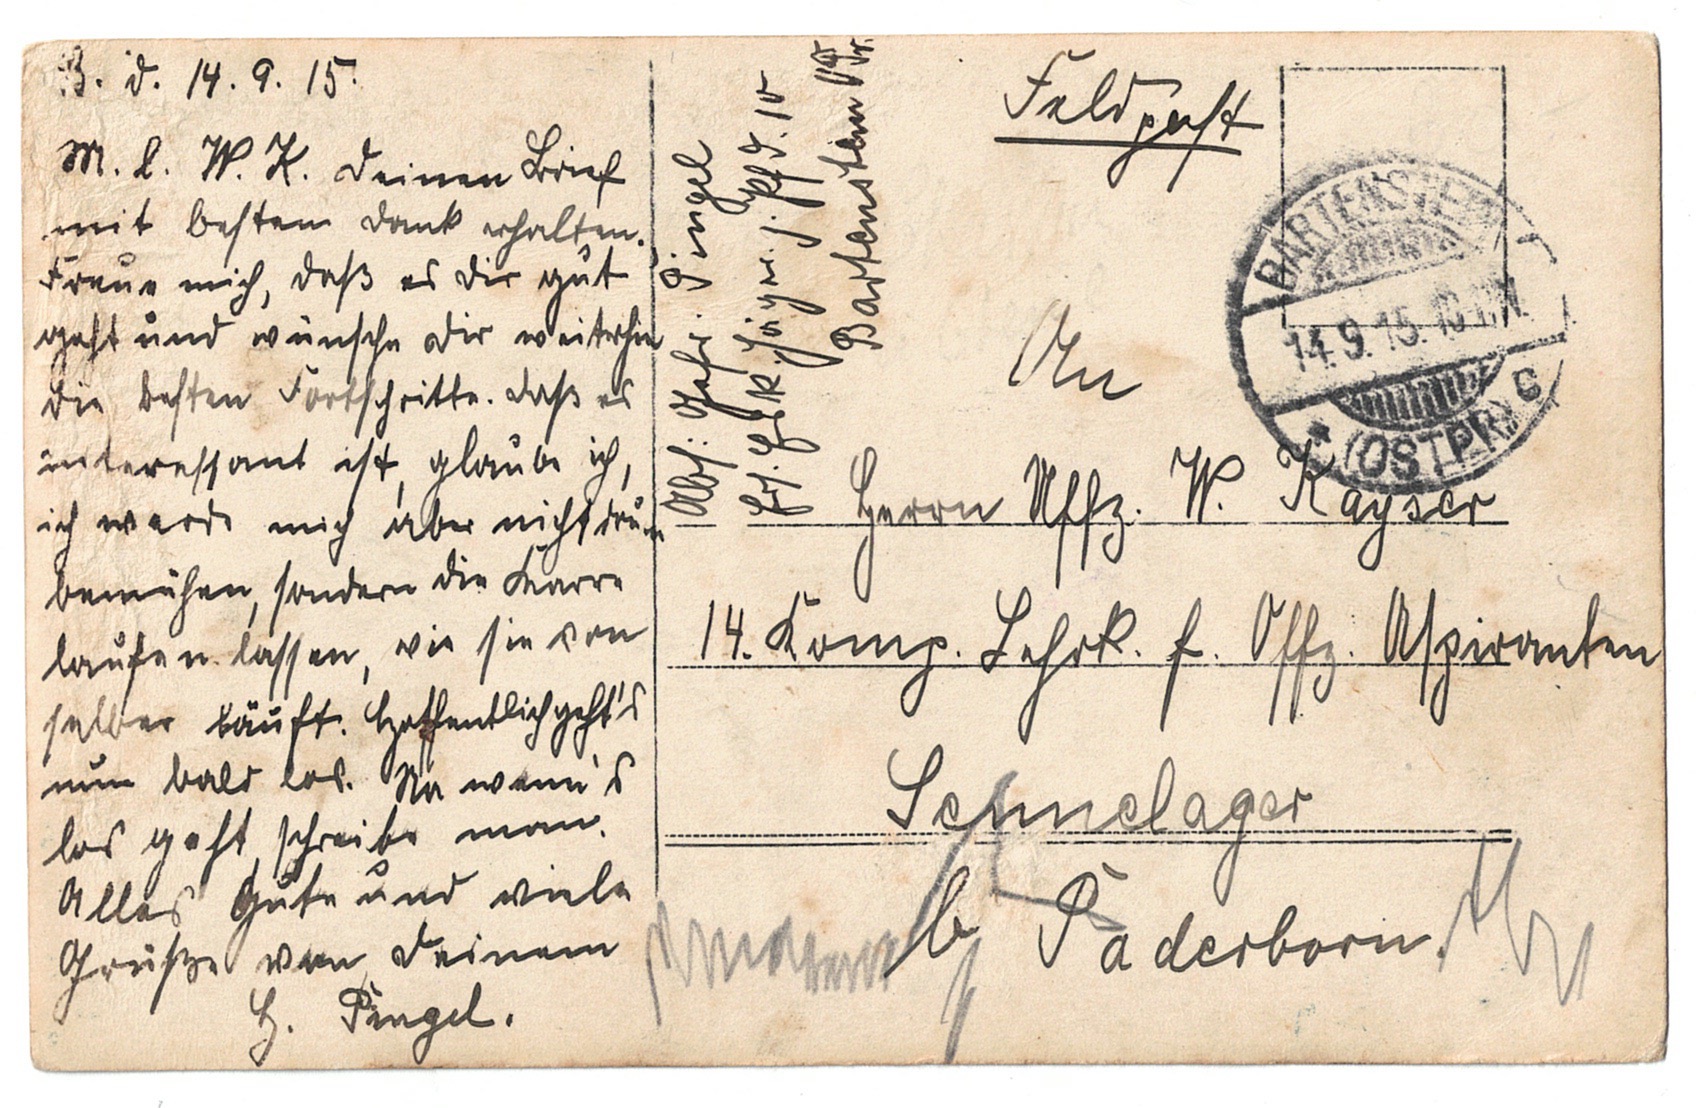 B. d. 14. 9. 15.
M. l. W. K. Deinen Brief
mit bestem Dank erhalten.
Freue mich, daß es Dir gut
geht und wünsche Dir weiterhin
die besten Fortschritte. Daß es
interessant ist, glaube ich,
ich werde mich aber nicht drum
bemühen, sondern die Karre
laufen lassen, wie sie von
selber läuft. Hoffentlich geht's
nun bald los. Na wenn's
los geht, schreibe man.
Alles Gute und viele
Grüße von Deinem
H. Pingel.
Abs: Gefr. Pingel
Jäger z. Pfd. 10
Bartenstein O/Pr.
Feldpost
BARTENSTEIN
14.9.15. 10
* (OSTPR) c
An
Herrn Uffz. W. Kayser
14. Komp. Lehrk. f. Offz. Aspiranten
Sennelager
b/ Paderborn.